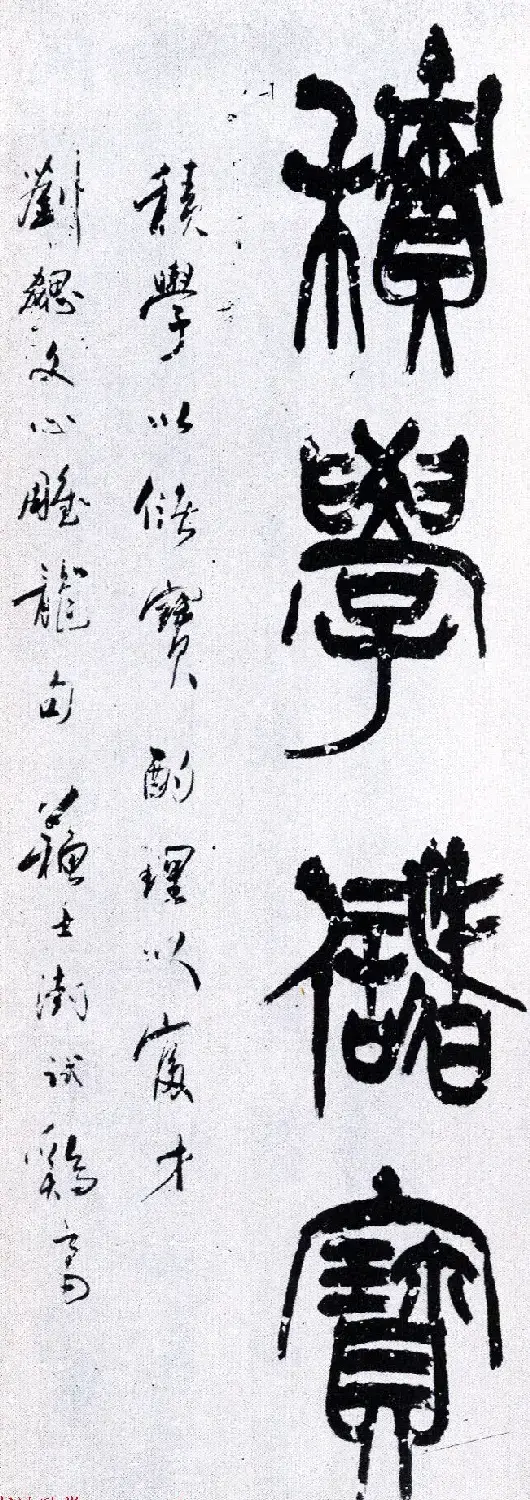 積學儲寶
積學以儲寶酌理以富才
劉勰文心雕龍句蘇士澍試鷄毫